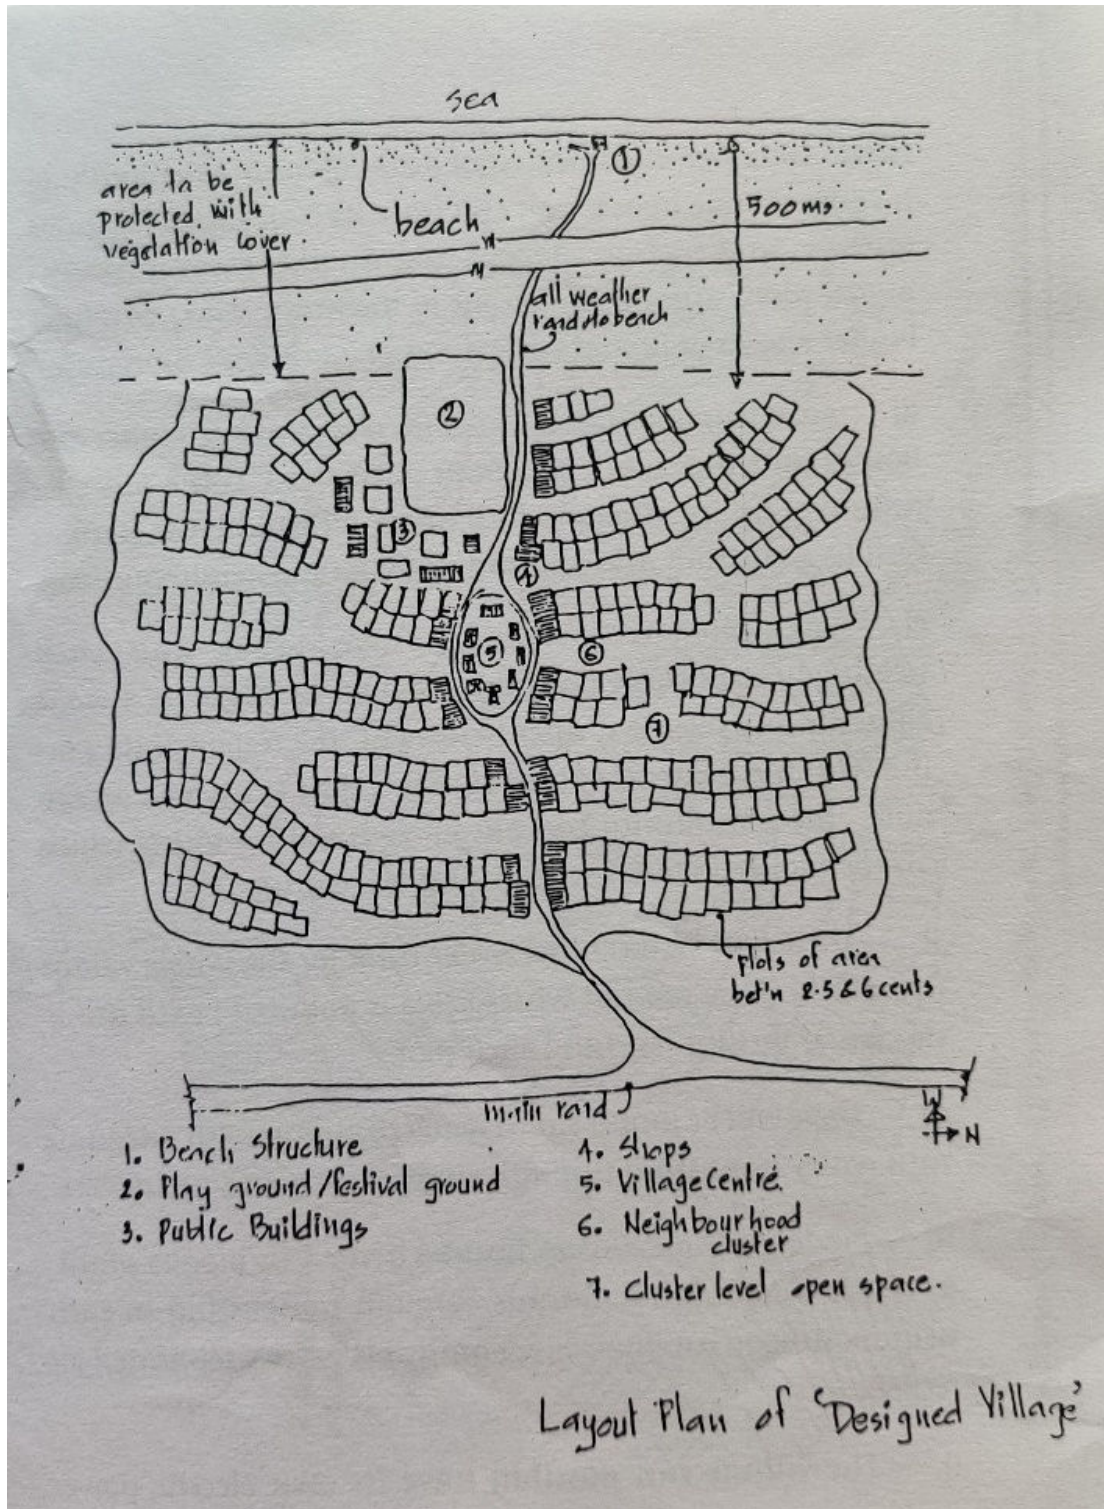 sea
1
area to be
protected with
vegetation cover.
beach
500 ms.
all weather
road to beach
2
3
4
5
6
7
plots of area
bet'n 2.5 & 6 cents
main road
W
N
1. Beach Structure
2. Play ground/festival ground
3. Public Buildings
4. Shops
5. Village Centre.
6. Neighbourhood
cluster
7. Cluster level open space.
Layout Plan of 'Designed Village'